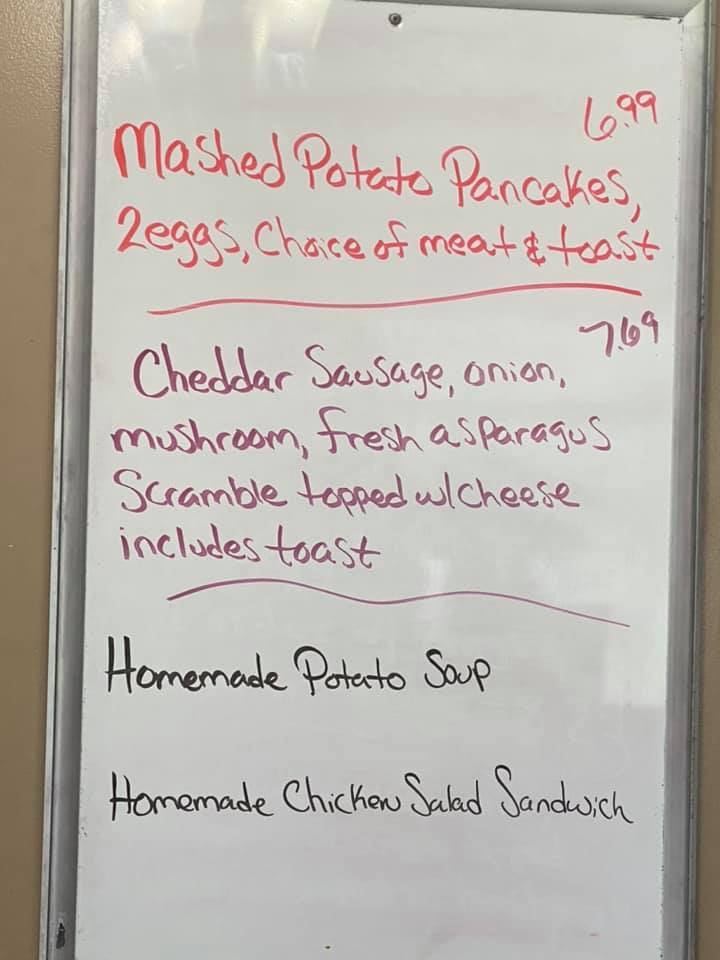 6.99
Mashed Potato Pancakes,
2eggs, Choice of meat & toast
7.69
Cheddar Sausage, onion,
mushroom, fresh asparagus
Scramble topped w/cheese
includes toast
Homemade Potato Soup
Homemade Chicken Salad Sandwich